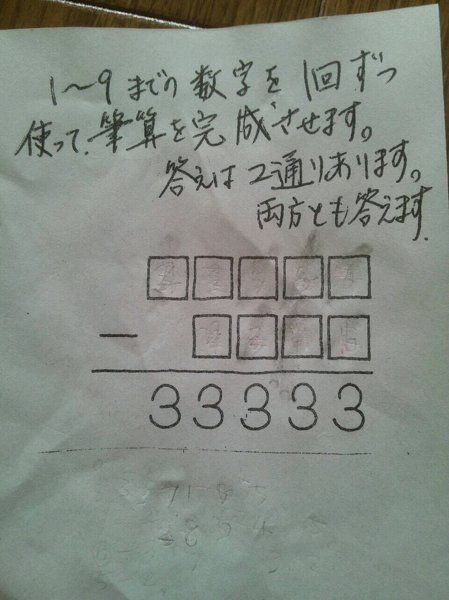 1〜9までの数字を1回ずつ
使って、筆算を完成させます。
答えは2通りあります。
両方とも答えます.
−
33333